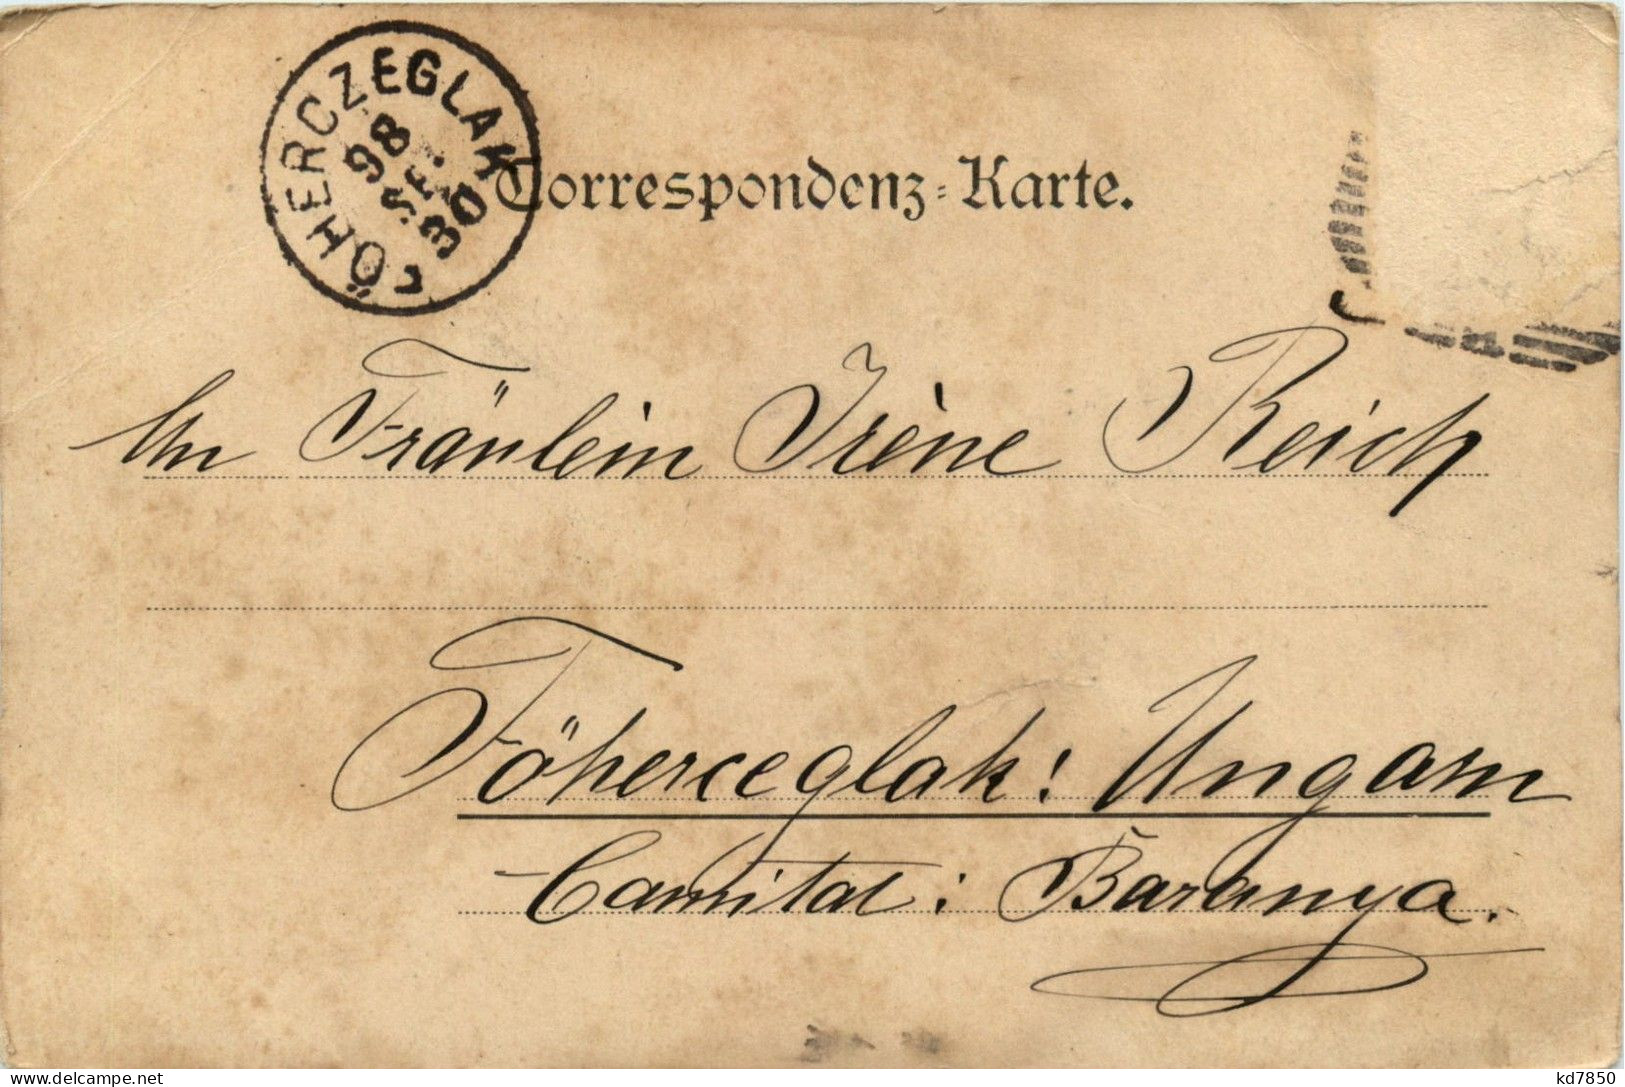 FÖHERCZEGLAK
98
SE.
30
Correspondenz-Karte.
An Fräulein Irène Reich
Föherceglak! Ungarn
Comitat: Baranya.
kd7850